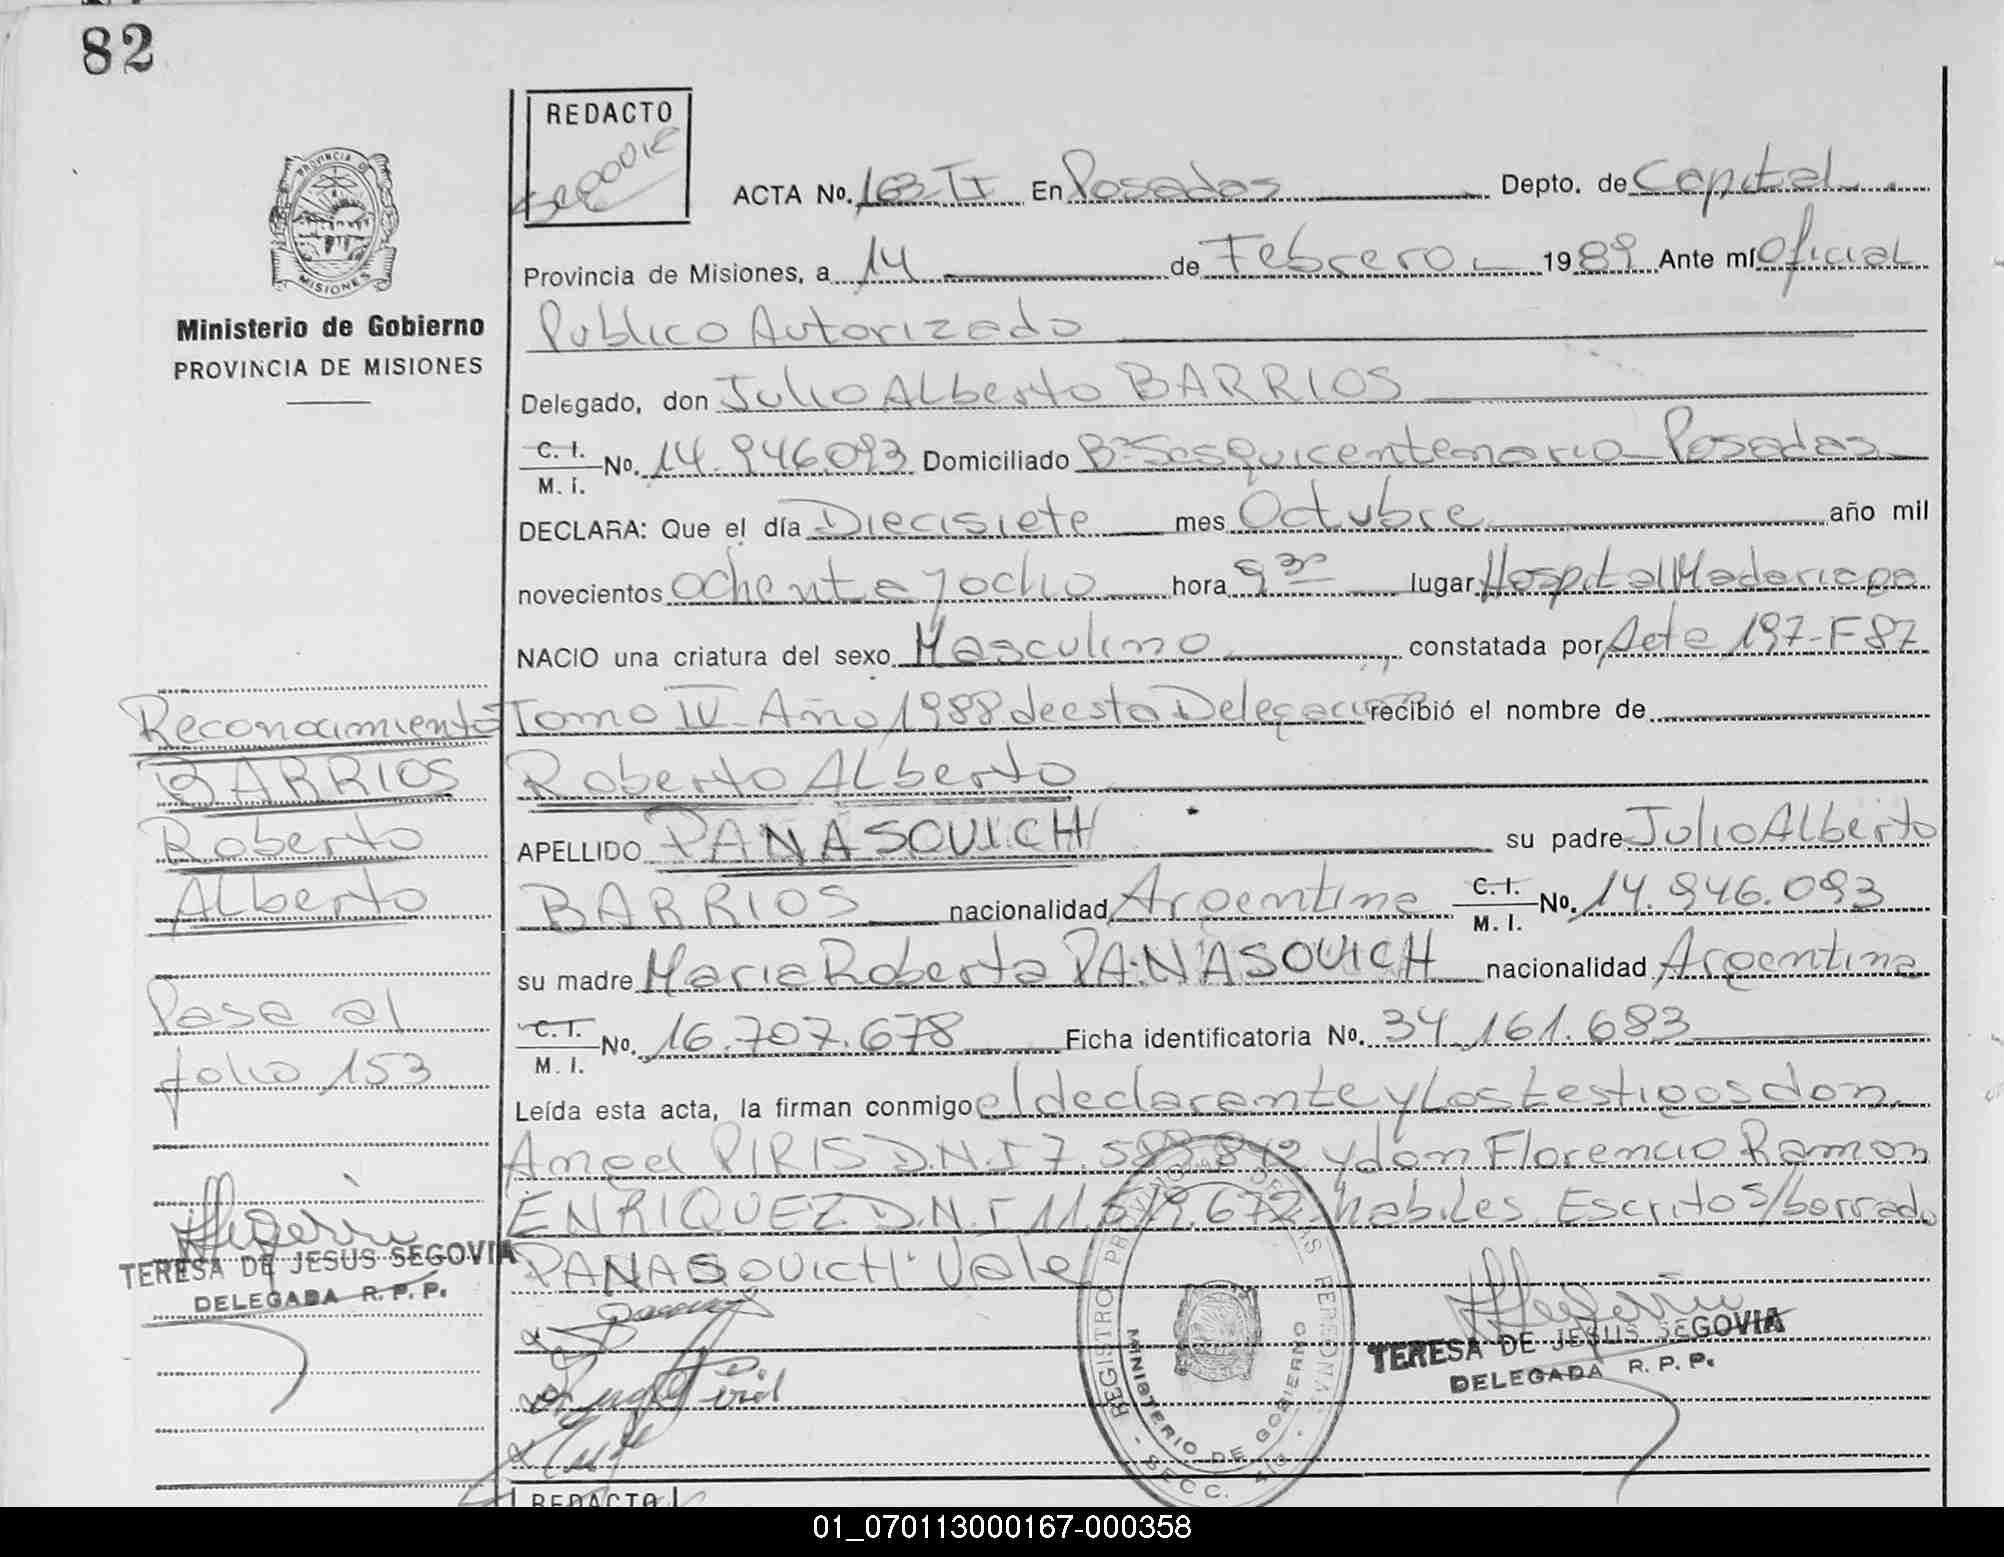 82
REDACTO
PROVINCIA DE
MISIONES
Ministerio de Gobierno
PROVINCIA DE MISIONES
ACTA No. 163-II En Posadas Depto. de Capital
Provincia de Misiones, a 14 de Febrero 1989 Ante mí Oficial
Publico Autorizado
Delegado, don Julio Alberto BARRIOS
C. I.
M. I. No. 14.946.093 Domiciliado Bº Sesquicentenario Posadas
DECLARA: Que el día Diecisiete mes Octubre año mil
novecientos ochenta y ocho hora 9 30 lugar Hospital Madariaga
NACIO una criatura del sexo Masculino, constatada por Acta 197-F 87
Tomo IV-Año 1988 de esta Delegacion recibió el nombre de
Roberto Alberto
APELLIDO PANASOUICH su padre Julio Alberto
BARRIOS nacionalidad Argentina C. I.
M. I. No. 14.946.093
su madre Maria Roberta PANASOUICH nacionalidad Argentina
C. I.
M. I. No. 16.707.678 Ficha identificatoria No. 34.161.683
Leída esta acta, la firman conmigo el declarante y los testigos don
Angel PIRIS D.N.I 7. y don Florencio Ramon
ENRIQUEZ D.N.I 11.519.672 habiles. Escritos/borrado
PANASOUICH Vale
Reconocimiento
BARRIOS
Roberto
Alberto
Pasa al
folio 153
TERESA DE JESUS SEGOVIA
DELEGADA R. P. P.
REGISTRO PROVINCIAL DE LAS PERSONAS
MINISTERIO DE GOBIERNO
- SECC.
TERESA DE JESUS SEGOVIA
DELEGADA R. P. P.
REDACTO
01_070113000167-000358